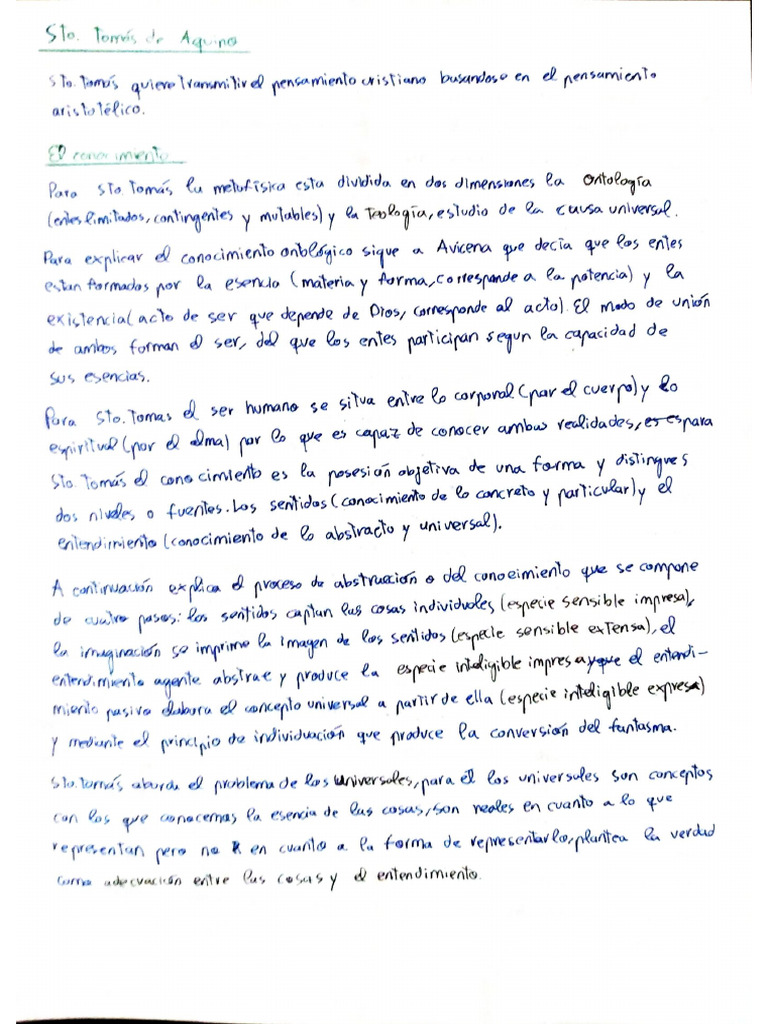 Sto. Tomás de Aquino
Sto. Tomás quiere transmitir el pensamiento cristiano basandose en el pensamiento
aristotélico.
El conocimiento
Para Sto. Tomás la metafísica esta dividida en dos dimensiones la ontología
(entes limitados, contingentes y mutables) y la Teología, estudio de la causa universal.
Para explicar el conocimiento ontológico sigue a Avicena que decía que los entes
estan formados por la esencia (materia y forma, corresponde a la potencia) y la
existencia (acto de ser que depende de Dios, corresponde al acto). El modo de unión
de ambos forman el ser, del que los entes participan segun la capacidad de
sus esencias.
Para Sto. Tomas el ser humano se situa entre lo corporal (por el cuerpo) y lo
espiritual (por el alma) por lo que es capaz de conocer ambas realidades, es para
Sto. Tomás el conocimiento es la posesión objetiva de una forma y distingues
dos niveles o fuentes. Los sentidos (conocimiento de lo concreto y particular) y el
entendimiento (conocimiento de lo abstracto y universal).
A continuación explica el proceso de abstracción o del conocimiento que se compone
de cuatro pasos: los sentidos captan las cosas individuales (especie sensible impresa),
la imaginación se imprime la imagen de los sentidos (especie sensible extensa), el
entendimiento agente abstrae y produce la especie inteligible impresa y que el entendi-
miento pasivo elabora el concepto universal a partir de ella (especie inteligible expresa)
y mediante el principio de individuación que produce la conversión del fantasma.
Sto. Tomás aborda el problema de los universales, para él los universales son conceptos
con los que conocemos la esencia de las cosas, son reales en cuanto a lo que
representan pero no en cuanto a la forma de representarlo, plantea la verdad
como adecuación entre las cosas y el entendimiento.